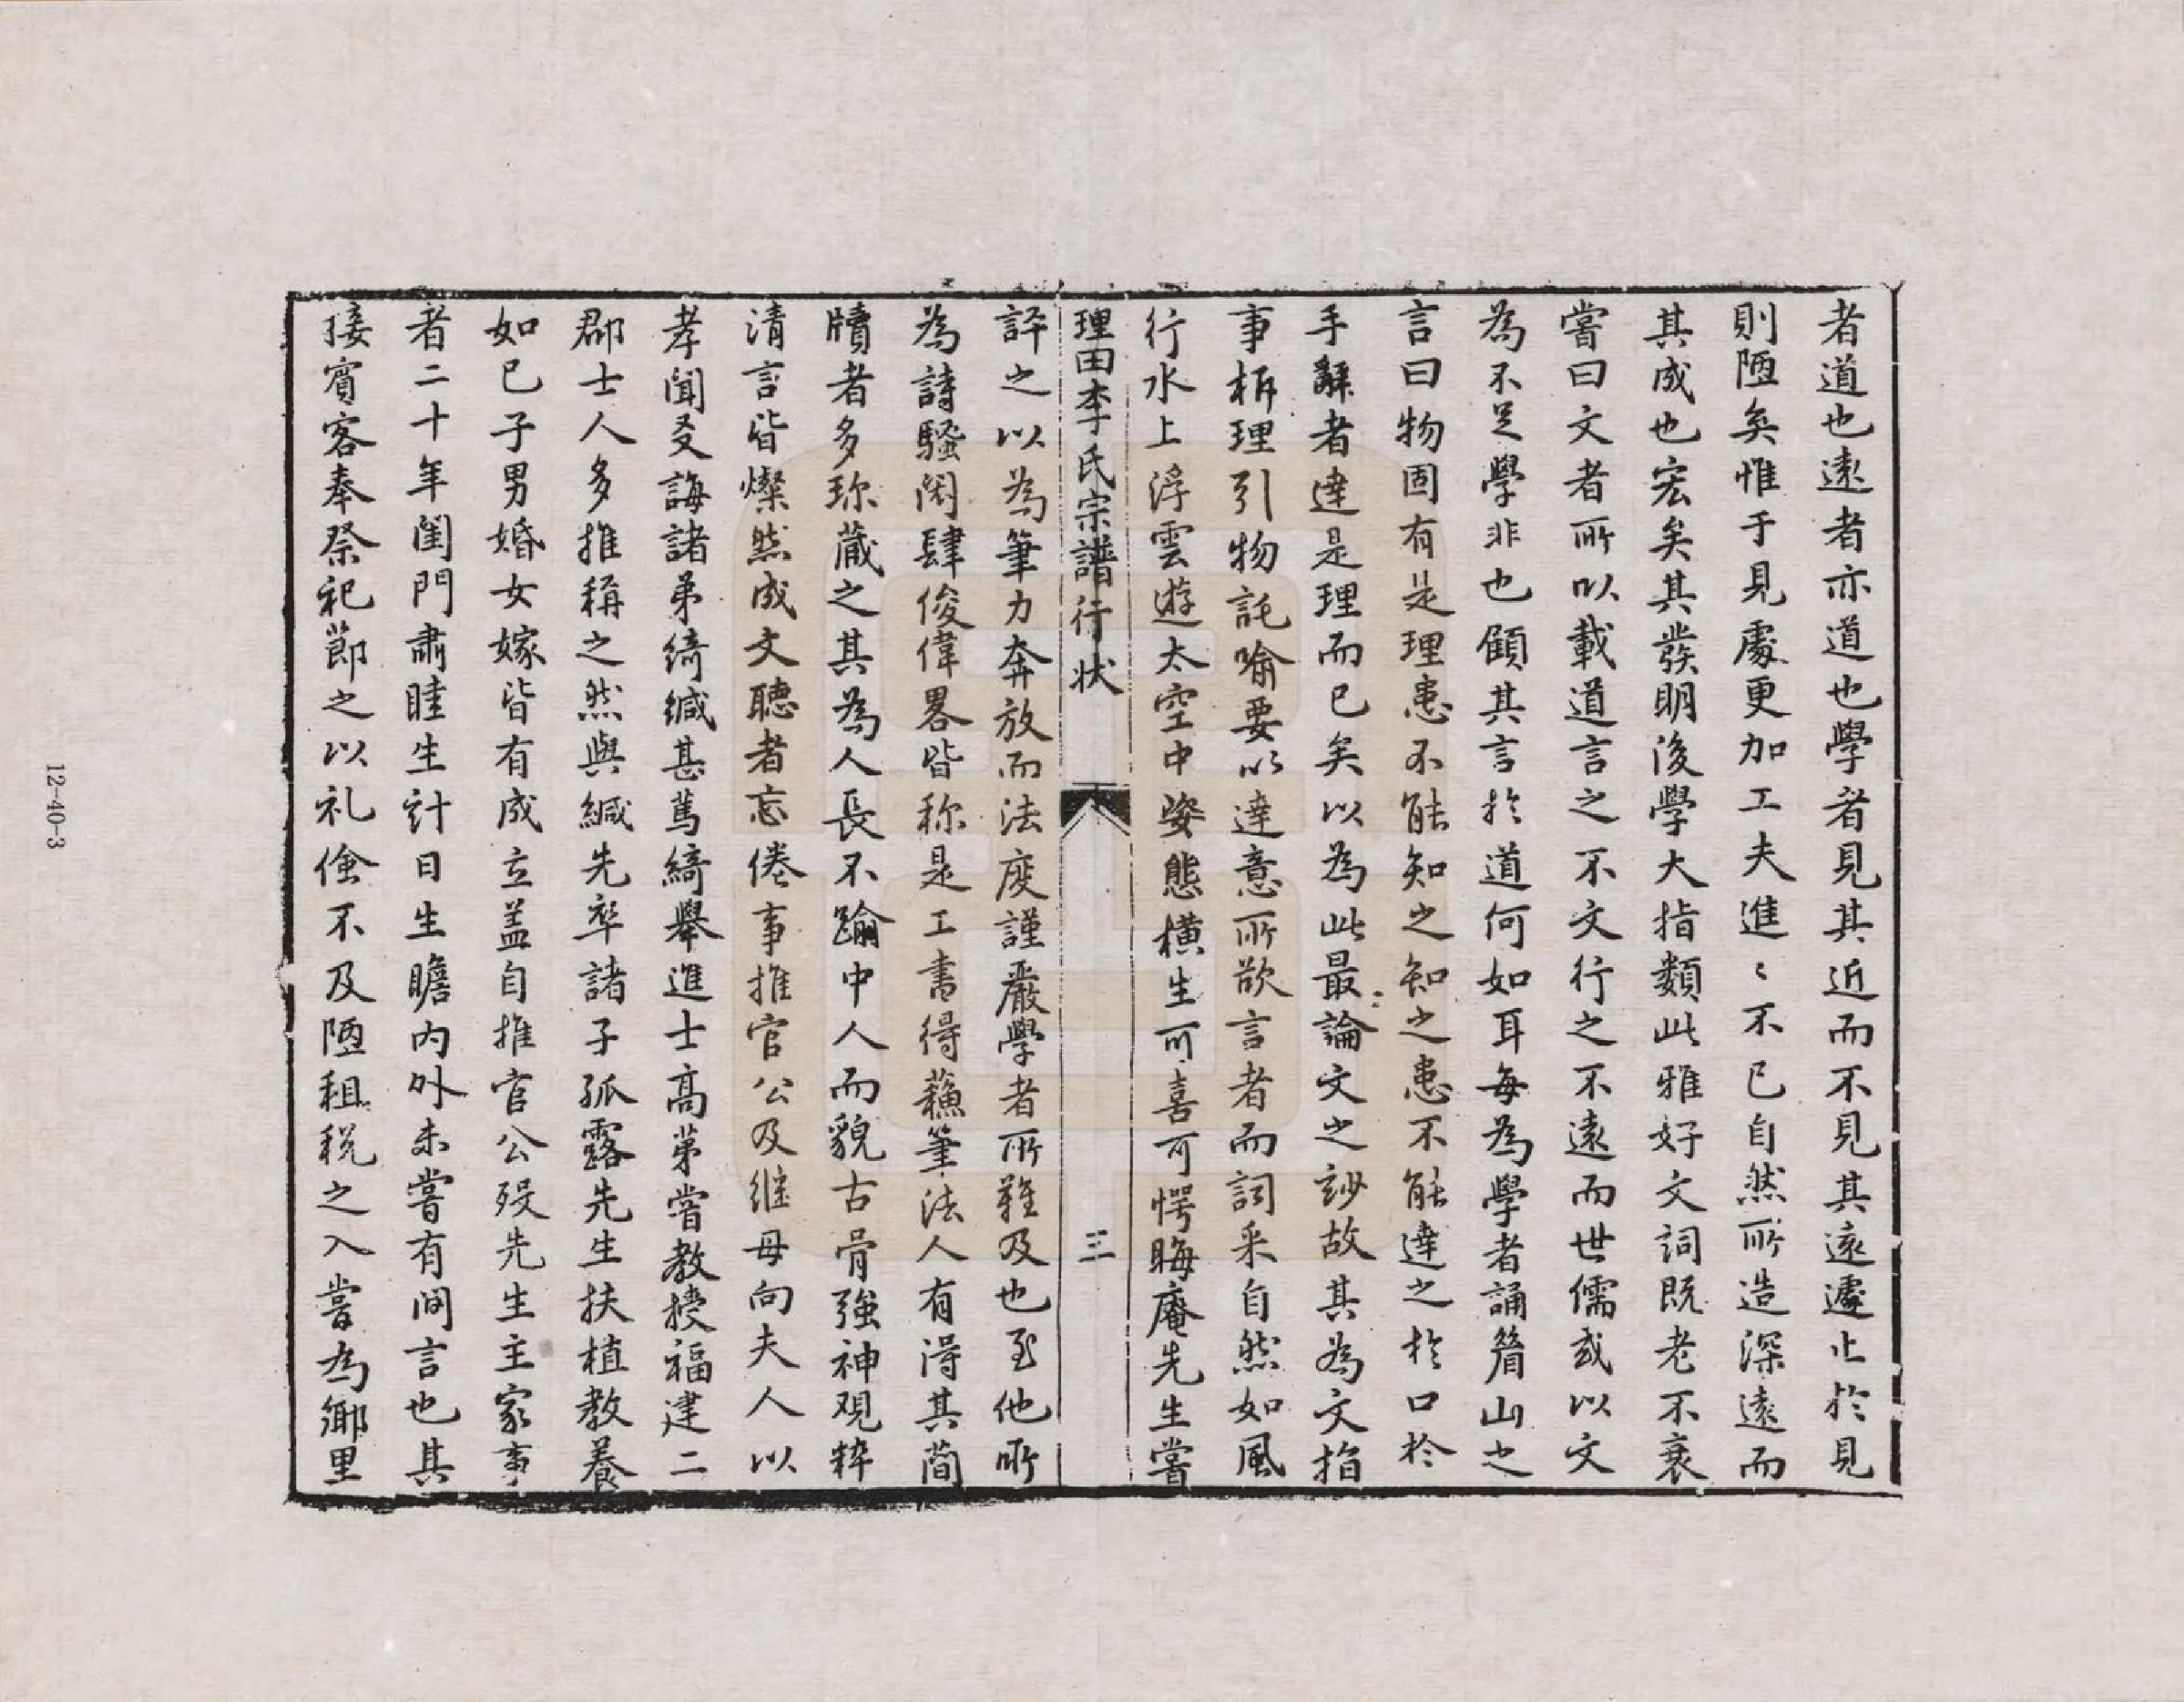 者道也遠者亦道也學者見其近而不見其遠遽止於見
則陋矣惟于見處更加工夫進〻不已自然所造深遠而
其成也宏矣其發明後學大指類此雅好文詞既老不衰
嘗曰文者所以載道言之不文行之不遠而世儒或以文
為不足學非也顧其言於道何如耳每為學者誦眉山之
言曰物固有是理患不能知之知之患不能達之於口於
手辭者達是理而已矣以為此最論文之妙故其為文指
事析理引物託喻要以達意所欲言者而詞采自然如風
行水上浮雲遊太空中姿態橫生可喜可愕晦庵先生嘗
理田李氏宗譜行状
三
評之以為筆力奔放而法度謹嚴學者所難及也至他所
為詩騷闳肆俊偉畧皆称是工書得蘓筆法人有得其蕳
牘者多珎蔵之其為人長不踰中人而貌古骨強神观粹
清言皆燦然成文聽者忘倦事推官公及継母向夫人以
孝聞友誨諸弟綺緘甚篤綺舉進士高第嘗教授福建二
郡士人多推稱之然與緘先卒諸子孤露先生扶植教養
如已子男婚女嫁皆有成立盖自推官公殁先生主家事
者二十年閨門肅睦生計日生贍内外未嘗有间言也其
接賓客奉祭祀莭之以礼儉不及陋租税之入嘗為鄉里
12-40-3